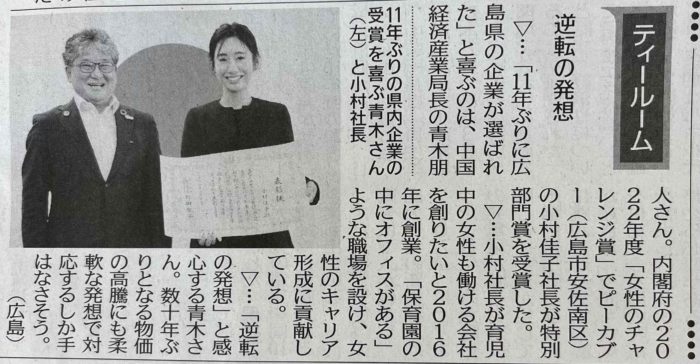 ティールーム
逆転の発想
▽…「11年ぶりに広
島県の企業が選ばれ
た」と喜ぶのは、中国
経済産業局長の青木朋
人さん。内閣府の20
22年度「女性のチャ
レンジ賞」でピーカブ
ー(広島市安佐南区)
の小村佳子社長が特別
部門賞を受賞した。
▽…小村社長が育児
中の女性も働ける会社
を創りたいと2016
年に創業。「保育園の
中にオフィスがある」
ような職場を設け、女
性のキャリア
形成に貢献し
ている。
▽…「逆転
の発想」と感
心する青木さ
ん。数十年ぶ
りとなる物価
の高騰にも柔
軟な発想で対
応するしか手
はなさそう。
(広島)
11年ぶりの県内企業の
受賞を喜ぶ青木さん
(左)と小村社長
表彰状